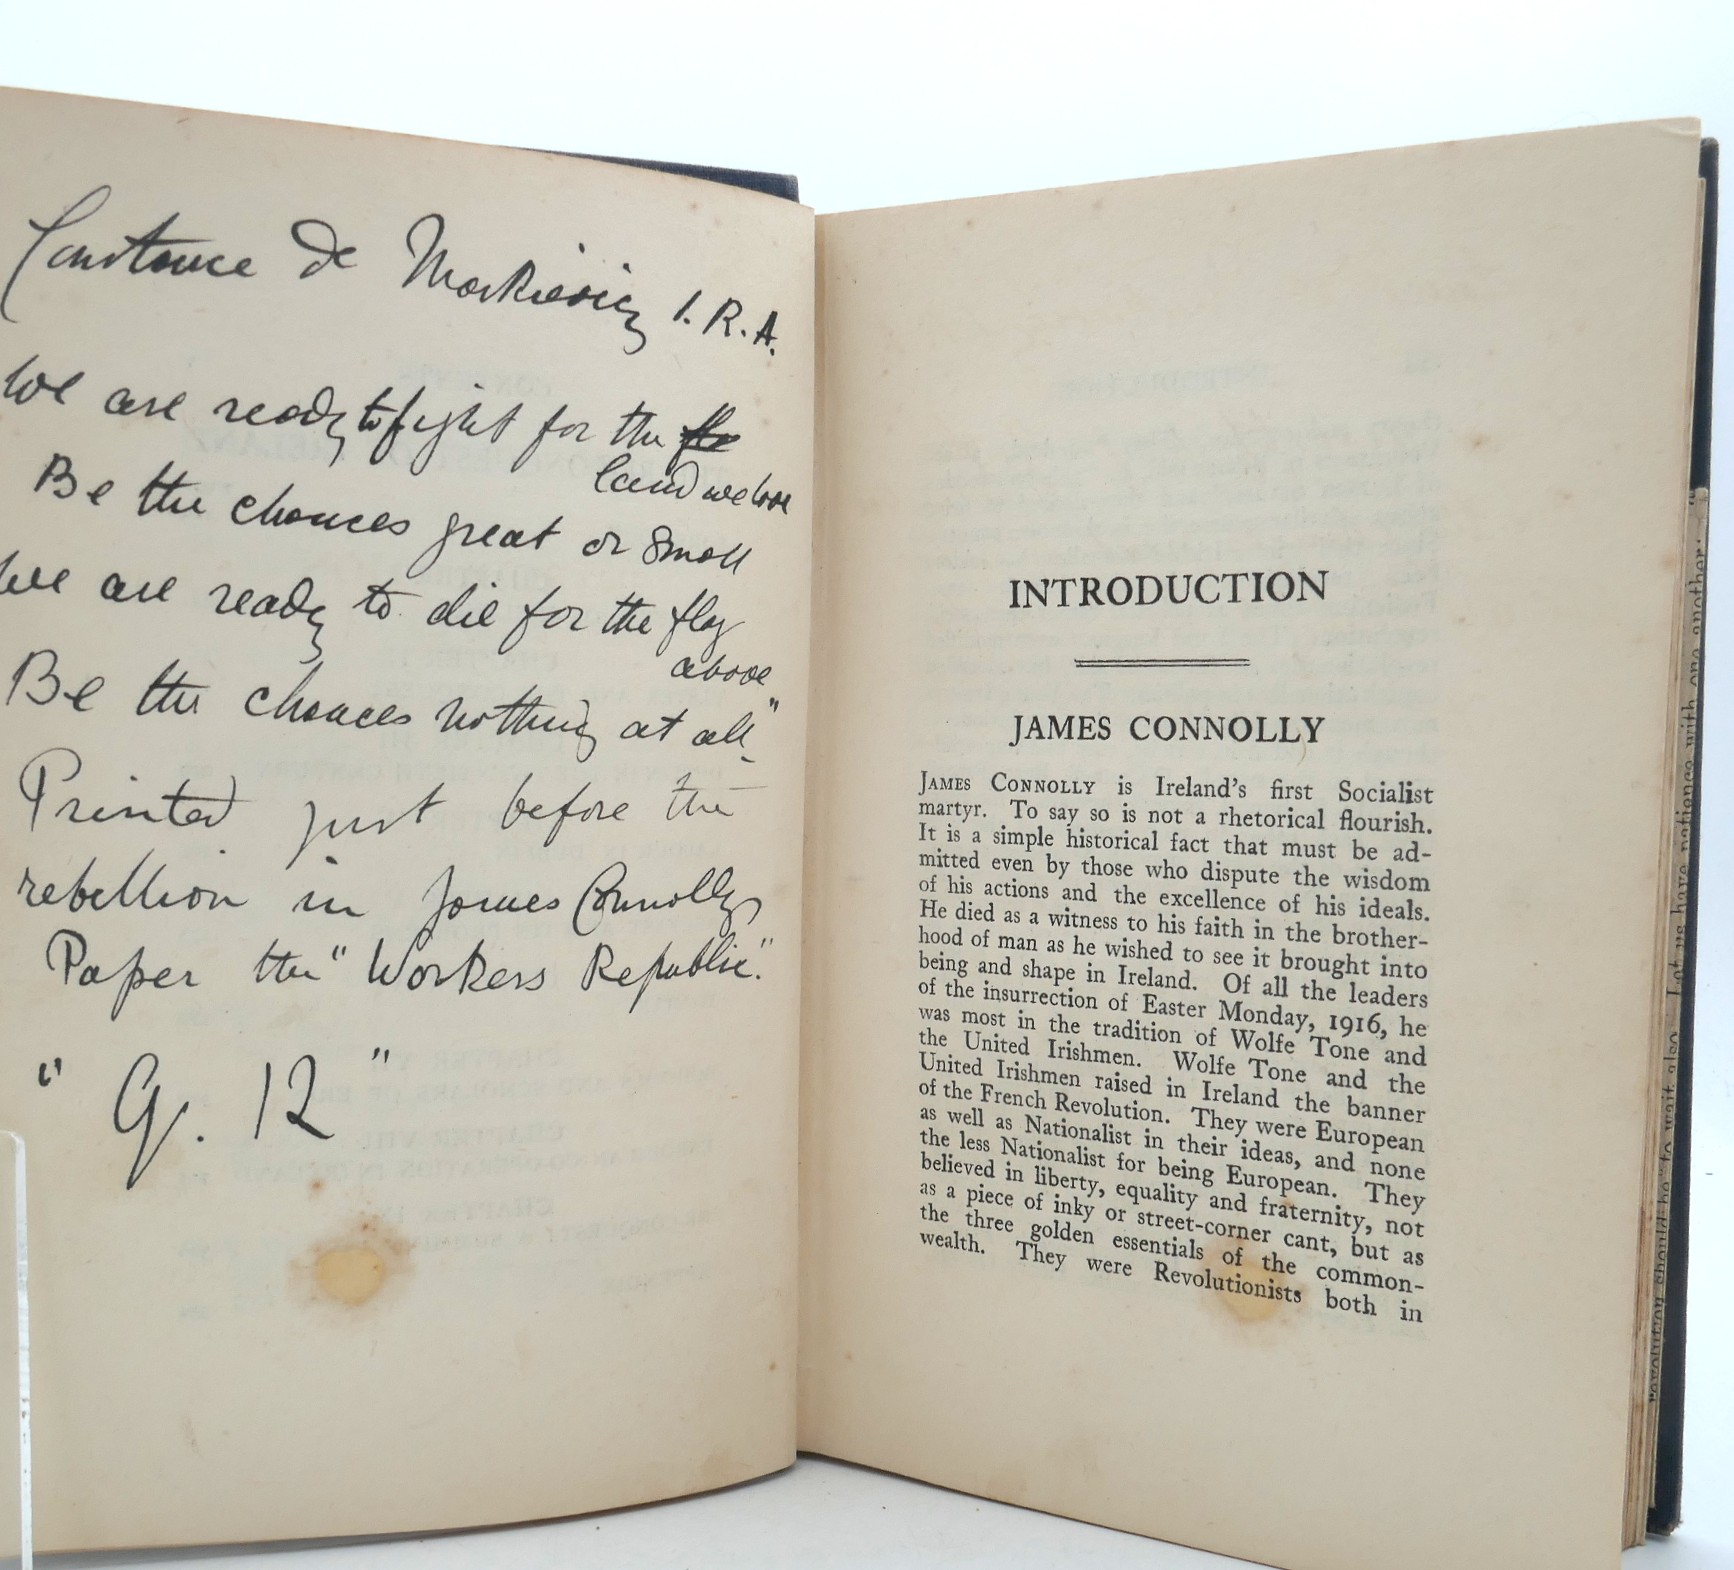 Constance de Markievicz I.R.A.
We are ready to fight for the
land we love
Be the chances great or small
We are ready to die for the flag
above
Be the chances nothing at all"
Printed just before the
rebellion in James Connollys
Paper the "Workers Republic."
" G. 12 "
INTRODUCTION
JAMES CONNOLLY
JAMES CONNOLLY is Ireland's first Socialist
martyr. To say so is not a rhetorical flourish.
It is a simple historical fact that must be ad-
mitted even by those who dispute the wisdom
of his actions and the excellence of his ideals.
He died as a witness to his faith in the brother-
hood of man as he wished to see it brought into
being and shape in Ireland. Of all the leaders
of the insurrection of Easter Monday, 1916, he
was most in the tradition of Wolfe Tone and
the United Irishmen. Wolfe Tone and the
United Irishmen raised in Ireland the banner
of the French Revolution. They were European
as well as Nationalist in their ideas, and none
the less Nationalist for being European. They
believed in liberty, equality and fraternity, not
as a piece of inky or street-corner cant, but as
the three golden essentials of the common-
wealth. They were Revolutionists both in
Let us have patience with one another: